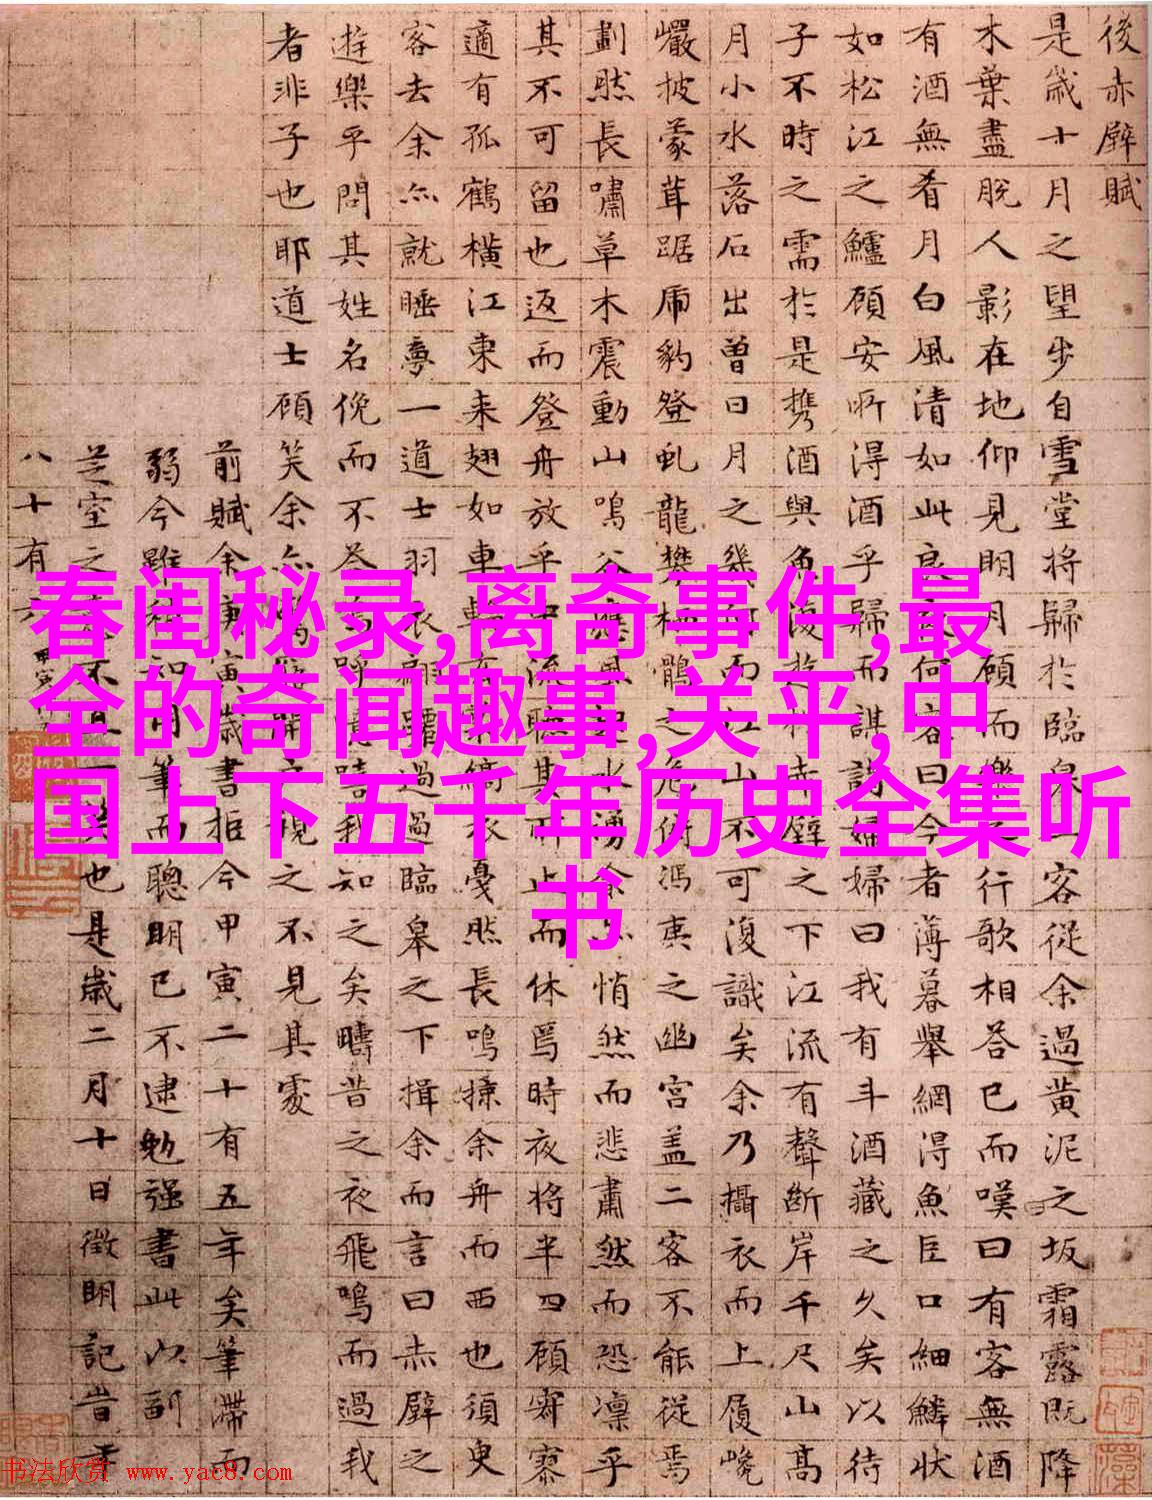 後赤壁賦
是歲十月之望步自雪堂將歸於臨皋二客從余過黄泥之坂霜露既降
木葉盡脫人影在地仰見明月顧而樂之行歌相答已而嘆曰有客無酒
有酒無肴月白風清如此良夜何客曰今者薄暮舉網得魚巨口細鱗狀
如松江之鱸顧安所得酒乎歸而謀諸婦婦曰我有斗酒藏之久矣以待
子不時之需於是携酒與魚復遊於赤壁之下江流有聲斷岸千尺山高
月小水落石出曾日月之幾何而江山不可復識矣余乃攝衣而上履巉
巖披蒙茸踞虎豹登虬龍攀栖鶻之危俯馮夷之幽宮盖二客不能從焉
劃然長嘯草木震動山鳴谷應風起水湧余亦悄然而悲肅然而恐凜乎
其不可留也返而登舟放乎中流聽其所止而休焉時夜將半四顧寂寥
適有孤鶴橫江東来翅如車輪玄裳縞衣戛然長鳴掠余舟而西也須臾
客去余亦就睡夢一道士羽衣翩躚過臨皋之下揖余而言曰赤壁之
遊樂乎問其姓名俛而不答嗚呼噫嘻我知之矣疇昔之夜飛鳴而過我
者非子也耶道士顧笑余亦驚寤開戶視之不見其處
前賦余庚寅歲書拒今甲寅二十有五年矣筆滯而
弱今雖稍知用筆而聰明已不逮勉强書此以副
芝室之不一笑也是歲二月十日徵明記昔年
八十有六
春闺秘录,离奇事件,最
全的奇闻趣事,关平,中
国上下五千年历史全集听
书
书法欣赏 www.yac8.com